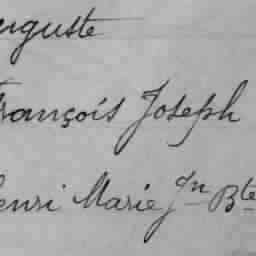 uguste
François Joseph
Henri Marie Jn Bte